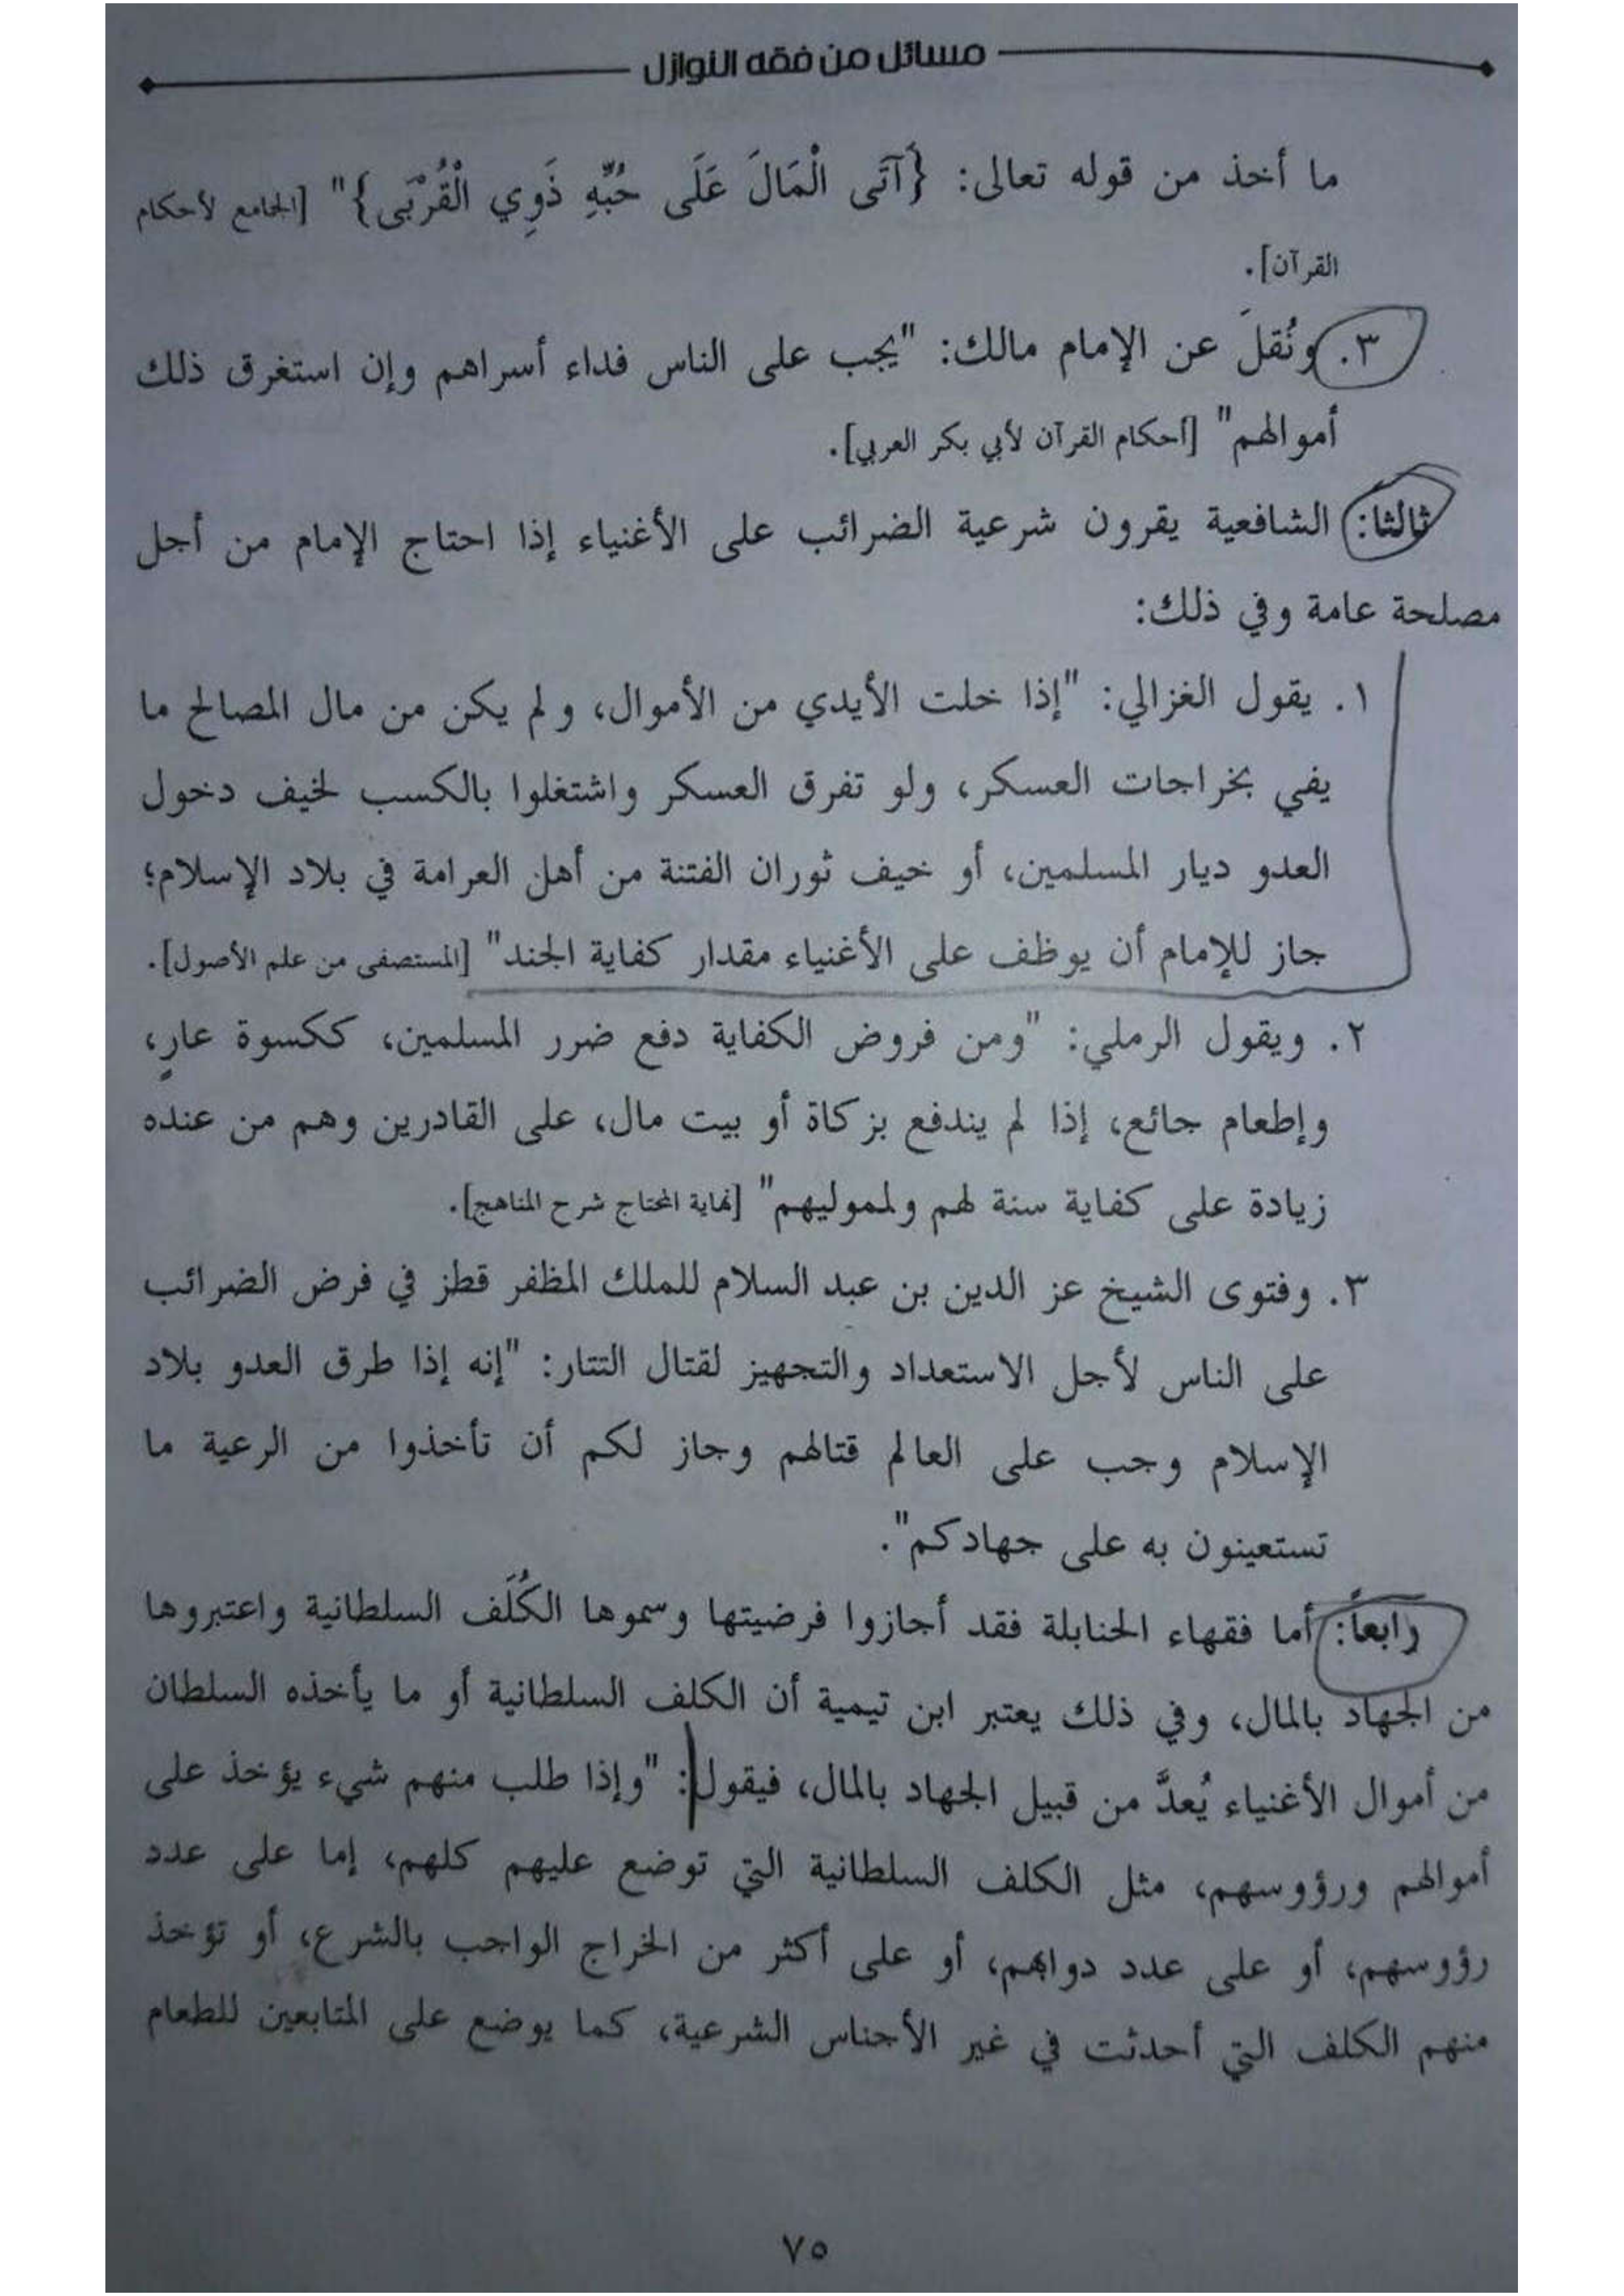 مسائل من فقه النوازل
ما أخذ من قوله تعالى: {آتَى الْمَالَ عَلَى حُبِّهِ ذَوِي الْقُرْبَى}" [الجامع لأحكام
القرآن].
٣. ونُقلَ عن الإمام مالك: "يجب على الناس فداء أسراهم وإن استغرق ذلك
أموالهم" [أحكام القرآن لأبي بكر العربي].
ثالثا: الشافعية يقرون شرعية الضرائب على الأغنياء إذا احتاج الإمام من أجل
مصلحة عامة وفي ذلك:
١. يقول الغزالي: "إذا خلت الأيدي من الأموال، ولم يكن من مال المصالح ما
يفي بخراجات العسكر، ولو تفرق العسكر واشتغلوا بالكسب لخيف دخول
العدو ديار المسلمين، أو خيف ثوران الفتنة من أهل العرامة في بلاد الإسلام؛
جاز للإمام أن يوظف على الأغنياء مقدار كفاية الجند" [المستصفى من علم الأصول].
٢. ويقول الرملي: "ومن فروض الكفاية دفع ضرر المسلمين، ككسوة عارٍ،
وإطعام جائع، إذا لم يندفع بزكاة أو بيت مال، على القادرين وهم من عنده
زيادة على كفاية سنة لهم ولمموليهم" [نهاية المحتاج شرح المناهج].
٣. وفتوى الشيخ عز الدين بن عبد السلام للملك المظفر قطز في فرض الضرائب
على الناس لأجل الاستعداد والتجهيز لقتال التتار: "إنه إذا طرق العدو بلاد
الإسلام وجب على العالم قتالهم وجاز لكم أن تأخذوا من الرعية ما
تستعينون به على جهادكم".
رابعاً: أما فقهاء الحنابلة فقد أجازوا فرضيتها وسموها الكُلَف السلطانية واعتبروها
من الجهاد بالمال، وفي ذلك يعتبر ابن تيمية أن الكلف السلطانية أو ما يأخذه السلطان
من أموال الأغنياء يُعدَّ من قبيل الجهاد بالمال، فيقول: "وإذا طلب منهم شيء يؤخذ على
أموالهم ورؤوسهم، مثل الكلف السلطانية التي توضع عليهم كلهم، إما على عدد
رؤوسهم، أو على عدد دوابهم، أو على أكثر من الخراج الواجب بالشرع، أو تؤخذ
منهم الكلف التي أحدثت في غير الأجناس الشرعية، كما يوضع على المتابعين للطعام
٧٥